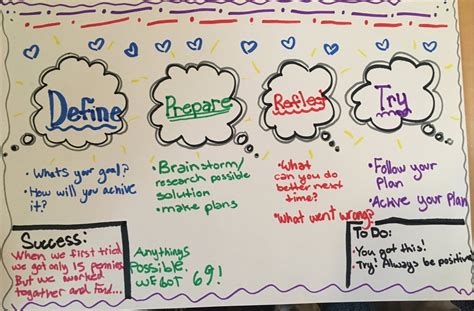 Define
Prepare
Reflect
Try
• Whats your goal?
• How will you achive
it?
• Brainstorm/
research possible
solution
• make plans
• What
can you do
better next
time?
• What went wrong?
• Follow your
Plan
• Active your plan
Success:
When we first tried
we got only 15 pennies
But we worked
together and
Anythings
Possible.
WE GOT 69!
To Do:
• You got this!
• Try: Always be positive!